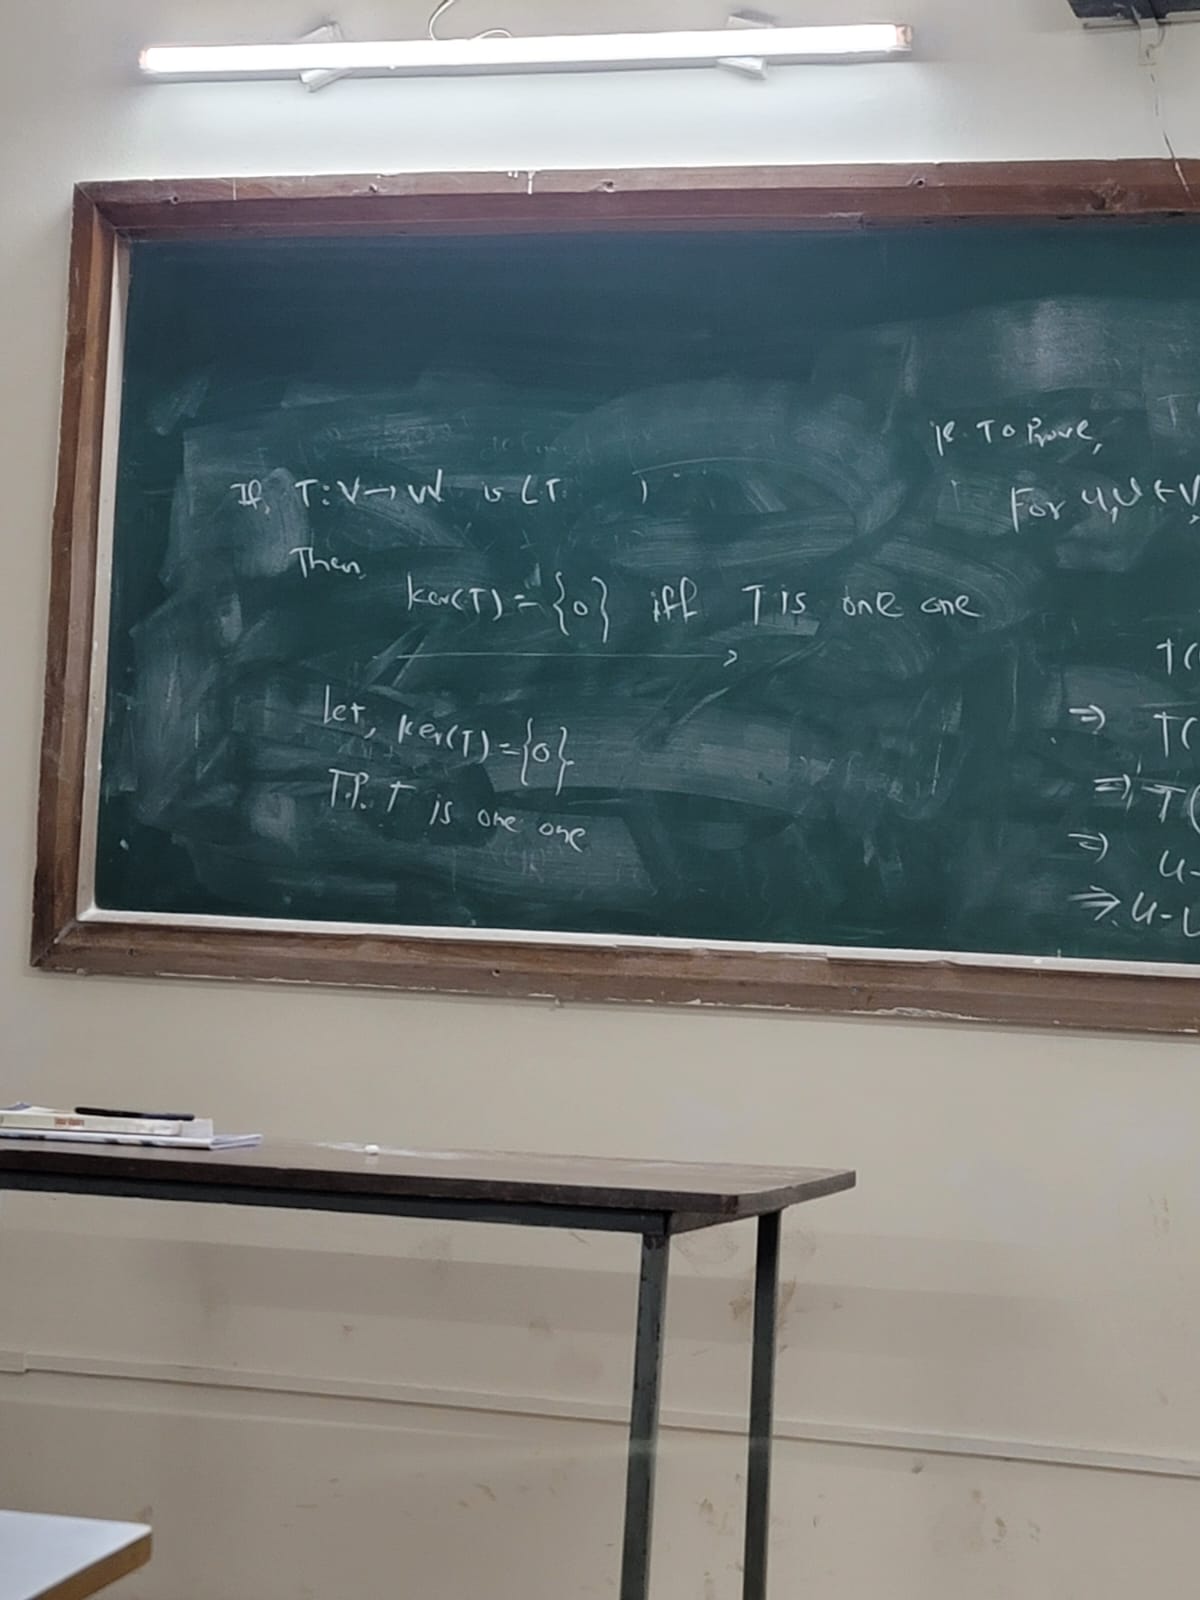 If, T:V→W is LT
Then,
ker(T) = {0} iff T is one one
Let, ker(T) = {0}
T.P. T is one one
ie. To Prove,
For u,v ∈ V
T(
⇒ T(
⇒ T(
⇒ u-
⇒ u-